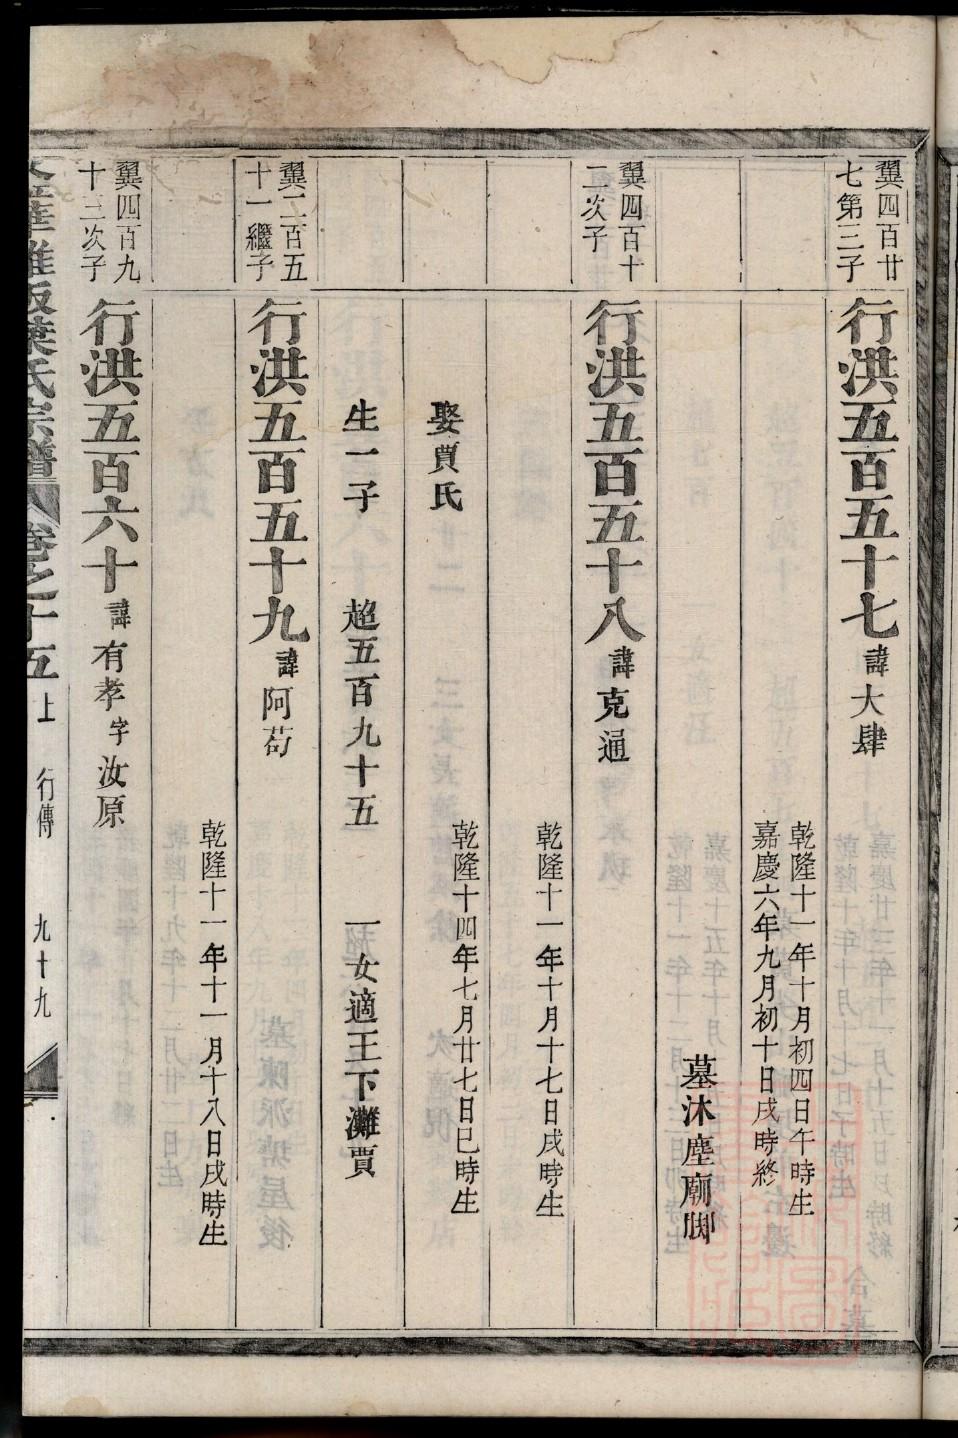 翼四百廿
七第三子
行洪五百五十七諱大肆
乾隆十一年十月初四日午時生
嘉慶六年九月初十日戌時終
墓沐塵廟脚
翼四百十
二次子
行洪五百五十八諱克通
乾隆十一年十月十七日戌時生
娶賈氏
乾隆十四年七月廿七日巳時生
生一子 超五百九十五 一女適王下灘賈
翼二百五
十一繼子
行洪五百五十九諱阿苟
乾隆十一年十一月十八日戌時生
翼四百九
十三次子
行洪五百六十諱有孝字汝原
華 葉氏宗譜 卷之十五上 行傳 九十九